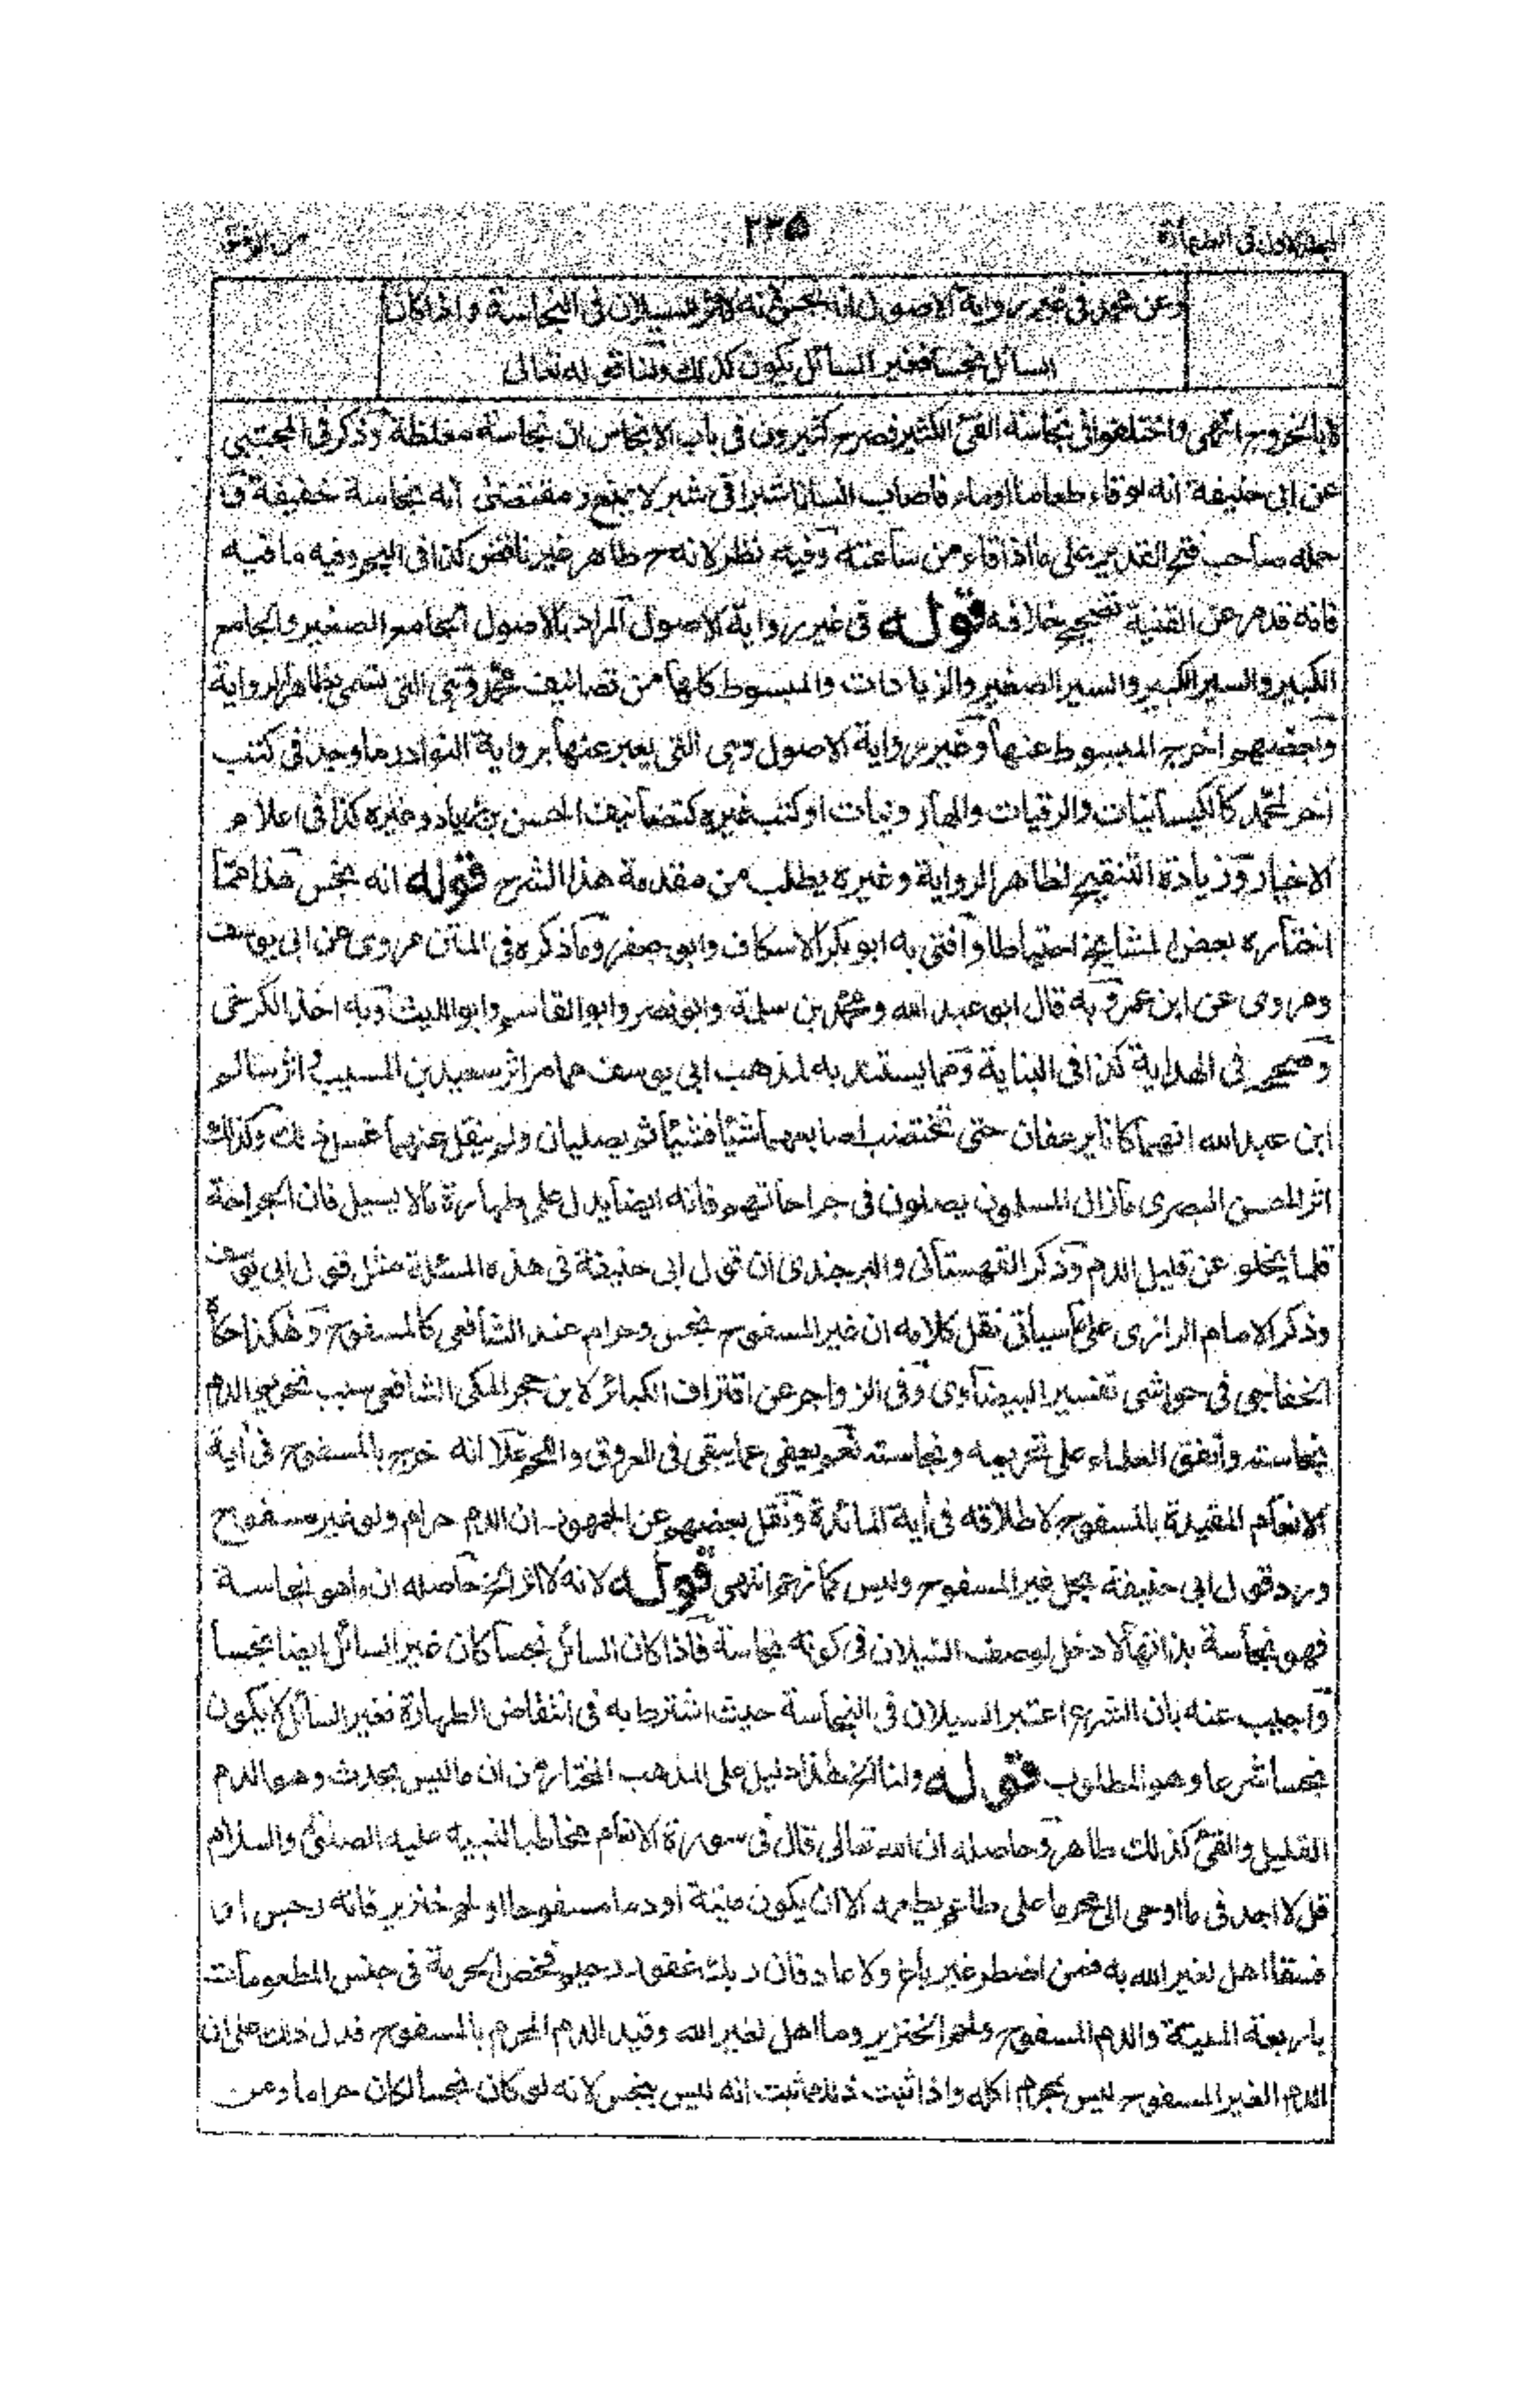 ٢٣٥
وعن محمد فى غير رواية الاصول انه نجس لانه لا اثر للسيلان فى النجاسة واذا كان
السائل نجسا فغير السائل يكون كذلك ولنا قوله تعالى
لا بالخروج انتهى واختلفوا فى نجاسة القئ الكثير فصرح كثيرون فى باب الانجاس ان نجاسة مغلظة وذكر فى المجتبى
عن ابى حنيفة انه لو قاء طعاما او ماء فاصاب انسانا شبرا فى شبر لا يمنع ومقتضى انه نجاسة خفيفة و
حمله صاحب فتح القدير على ما اذا قاء من ساعته وفيه نظر لانه ح طاهر غير ناقض كذا فى البحر وفيه ما فيه
فانه قد مر عن القنية تصحيح خلافه قوله فى غير رواية الاصول المراد بالاصول الجامع الصغير والجامع
الكبير والسير الكبير والسير الصغير والزيادات والمبسوط كلها من تصانيف محمد وهى التى تسمى بظاهر الرواية
وبعضهم اخرج المبسوط عنها وغير رواية الاصول وهى التى يعبر عنها برواية النوادر ما وجد فى كتب
اخر لمحمد كالكيسانيات والرقيات والهارونيات او كتب غيره كتصانيف الحسن بن زياد وغيره كذا فى اعلام
الاخيار وزيادة التنقيح لظاهر الرواية وغيره يطلب من مقدمة هذا الشرح قوله انه نجس هذا مما
اختاره بعض المشايخ احتياطا وافتى به ابو بكر الاسكاف وابو جعفر وما ذكره فى المتن مروى عن ابى يوسف
ومروى عن ابن عمر وبه قال ابو عبد الله ومحمد بن سلمة وابو نصر وابو القاسم وابو الليث وبه اخذ الكرخى
وصحح فى الهداية كذا فى البناية ومما يستند به لمذهب ابى يوسف ما مر اثر سعيد بن المسيب واثر سالم
ابن عبد الله انهما كانا يرعفان حتى تختضب اصابعهما شيئا فشيئا ثم يصليان ولم ينقل عنهما غسل ذلك وكذلك
اثر الحسن البصرى ما زال المسلمون يصلون فى جراحاتهم فانه ايضا يدل على طهارة ما لا يسيل فان الجراحة
قلما يخلو عن قليل الدم وذكر القهستانى والبرجندى ان قول ابى حنيفة فى هذه المسئلة مثل قول ابى يوسف
وذكر الامام الرازى على ما سيأتى نقل كلامه ان غير المسفوح نجس وحرام عند الشافعى كالمسفوح وهكذا حكاه
الخفاجى فى حواشى تفسير البيضاوى وفى الزواجر عن اقتراف الكبائر لابن حجر المكى الشافعى سبب تحريم الدم
نجاسته واتفق العلماء على تحريمه ونجاسته نعم يعفى عما يبقى فى العروق واللحم علا انه خرج بالمسفوح فى آية
الانعام المقيدة بالمسفوح لاطلاقه فى آية المائدة ونقل بعضهم عن الجمهور ان الدم حرام ولو غير مسفوح
ورد قول ابى حنيفة بحل غير المسفوح وليس كما زعم انتهى قوله لانه لا اثر الخ حاصله ان ما هو نجاسة
فهو نجاسة بذاتها لا دخل لوصف السيلان فى كونه نجاسة فاذا كان السائل نجسا كان غير السائل ايضا نجسا
واجيب عنه بان الشرع اعتبر السيلان فى النجاسة حيث اشترط به فى انتقاض الطهارة فغير السائل لا يكون
نجسا شرعا وهو المطلوب قوله ولنا الخ هذا دليل على المذهب المختار من ان ما ليس بحدث وهو الدم
القليل والقئ كذلك طاهر وحاصله ان الله تعالى قال فى سورة الانعام مخاطبا لنبيه عليه الصلوة والسلام
قل لا اجد فى ما اوحى الى محرما على طاعم يطعمه الا ان يكون ميتة او دما مسفوحا او لحم خنزير فانه رجس او
فسقا اهل لغير الله به فمن اضطر غير باغ ولا عاد فان ربك غفور رحيم فخص الحرمة فى جنس المطعومات
باربعة الميتة والدم المسفوح ولحم الخنزير وما اهل لغير الله وقيد الدم المحرم بالمسفوح فدل ذلك على ان
الدم الغير المسفوح ليس بمحرم اكله واذا ثبت ذلك ثبت انه ليس بنجس لانه لو كان نجسا لكان حراما وعن